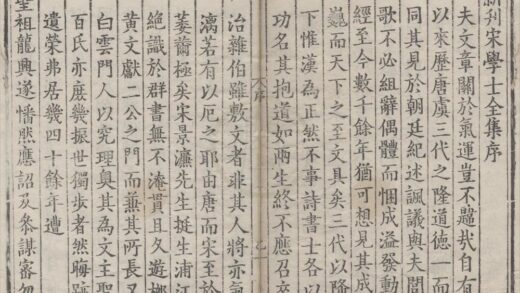 新刊宋學士全集序
夫文章關於氣運豈不難哉自有
以來歷唐虞三代之隆道德一而
同其見於朝廷紀述諷議與夫閭
歌不必組辭偶體而悃成溢發動
經至今數千餘年猶可想見其成
巍而天下之至文具矣三代以降
下惟漢為正然不事詩書士各以
功名其抱道如兩生終不應召卒
大序
治雜伯雖敷文者非其人將亦氣
漓若有以厄之耶由唐而宋至於
萎薾極矣宋景濂先生挺生浦江
絶識於群書無不淹貫且久遊鄉
黄文獻二公之門而兼其所長又
白雲門人以究理奥其為文王聖
百氏亦庶幾振世獨步者然晦跡
遺榮弗居幾四十餘年遭
聖祖龍興遂幡然應詔及參謀審勿